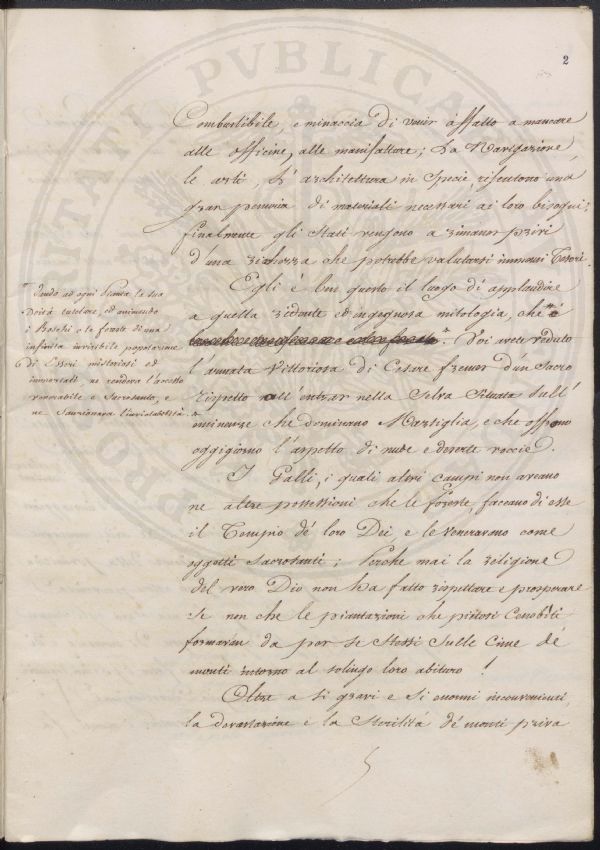 2
Combustibile, e minaccia di venir affatto a mancare
alle officine, alle manifatture; La Navigazione,
le arti, L'architettura in Specie, risentono una
gran penuria di materiali necessari ai loro bisogni;
finalmente gli Stati vengono a rimaner privi
d'una richezza che potrebbe valutarsi immensi Tesori.
Egli è ben questo il luogo di applaudire
a quella ridente ed ingegnosa mitologia, che
Voi avete veduto
l'armata Vittoriosa di Cesare fremer d'un Sacro
rispetto nell'entrar nella Selva Situata Sull'
eminenze che dominano Marsiglia, e che offrono
oggigiorno l'aspetto di nude e deserte roccie.
I Galli, i quali altri campi non aveano
ne altre possessioni che le foreste, faceano di esse
il Tempio de' loro Dei, e le Veneravano come
oggetti Sacrosanti; Perche mai la religione
del vero Dio non ha fatto rispettare e prosperare
Se non che le piantazioni che pietosi Cenobiti
formavan da per se Stessi Sulle Cime de'
monti intorno al solingo loro abituro!
Oltre a Si gravi e Si enormi inconvenienti,
la devastazione e la Sterilità de' monti priva
Dando ad ogni Pianta la sua
Deità tutelare, ed animando
i Boschi e le foreste di una
infinita invisibile popolazione
di Esseri misteriosi ed
immortali ne rendeva l'aspetto
venerabile e Sacrosanto, e
ne Sanzionava l'inviolabilità.
PVBLICA